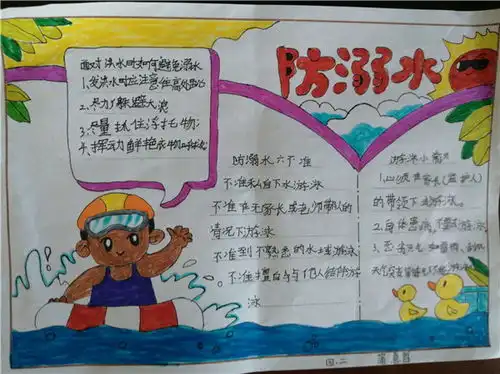 防溺水
面对洪水时如何避免溺水
1.发洪水时应注意往高处
2.尽力躲避大浪
3.尽量抓住浮托物
4.挥动鲜艳衣物
防溺水六不准
不准私自下水游泳
不准在无家长或老师带队的
情况下游泳
不准到不熟悉的水域游泳
不准擅自与他人结伴游
泳
游泳小
1.必须有家长(监护人)
的带领下去游泳。
2.身体患病不要去游泳
3.恶劣天气如雷雨、刮风
天气
四、二